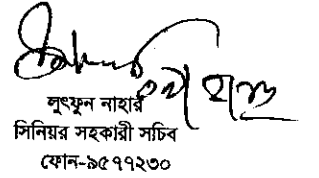 লুৎফুন নাহার
সিনিয়র সহকারী সচিব
ফোন-৯৫৭৭২৩০